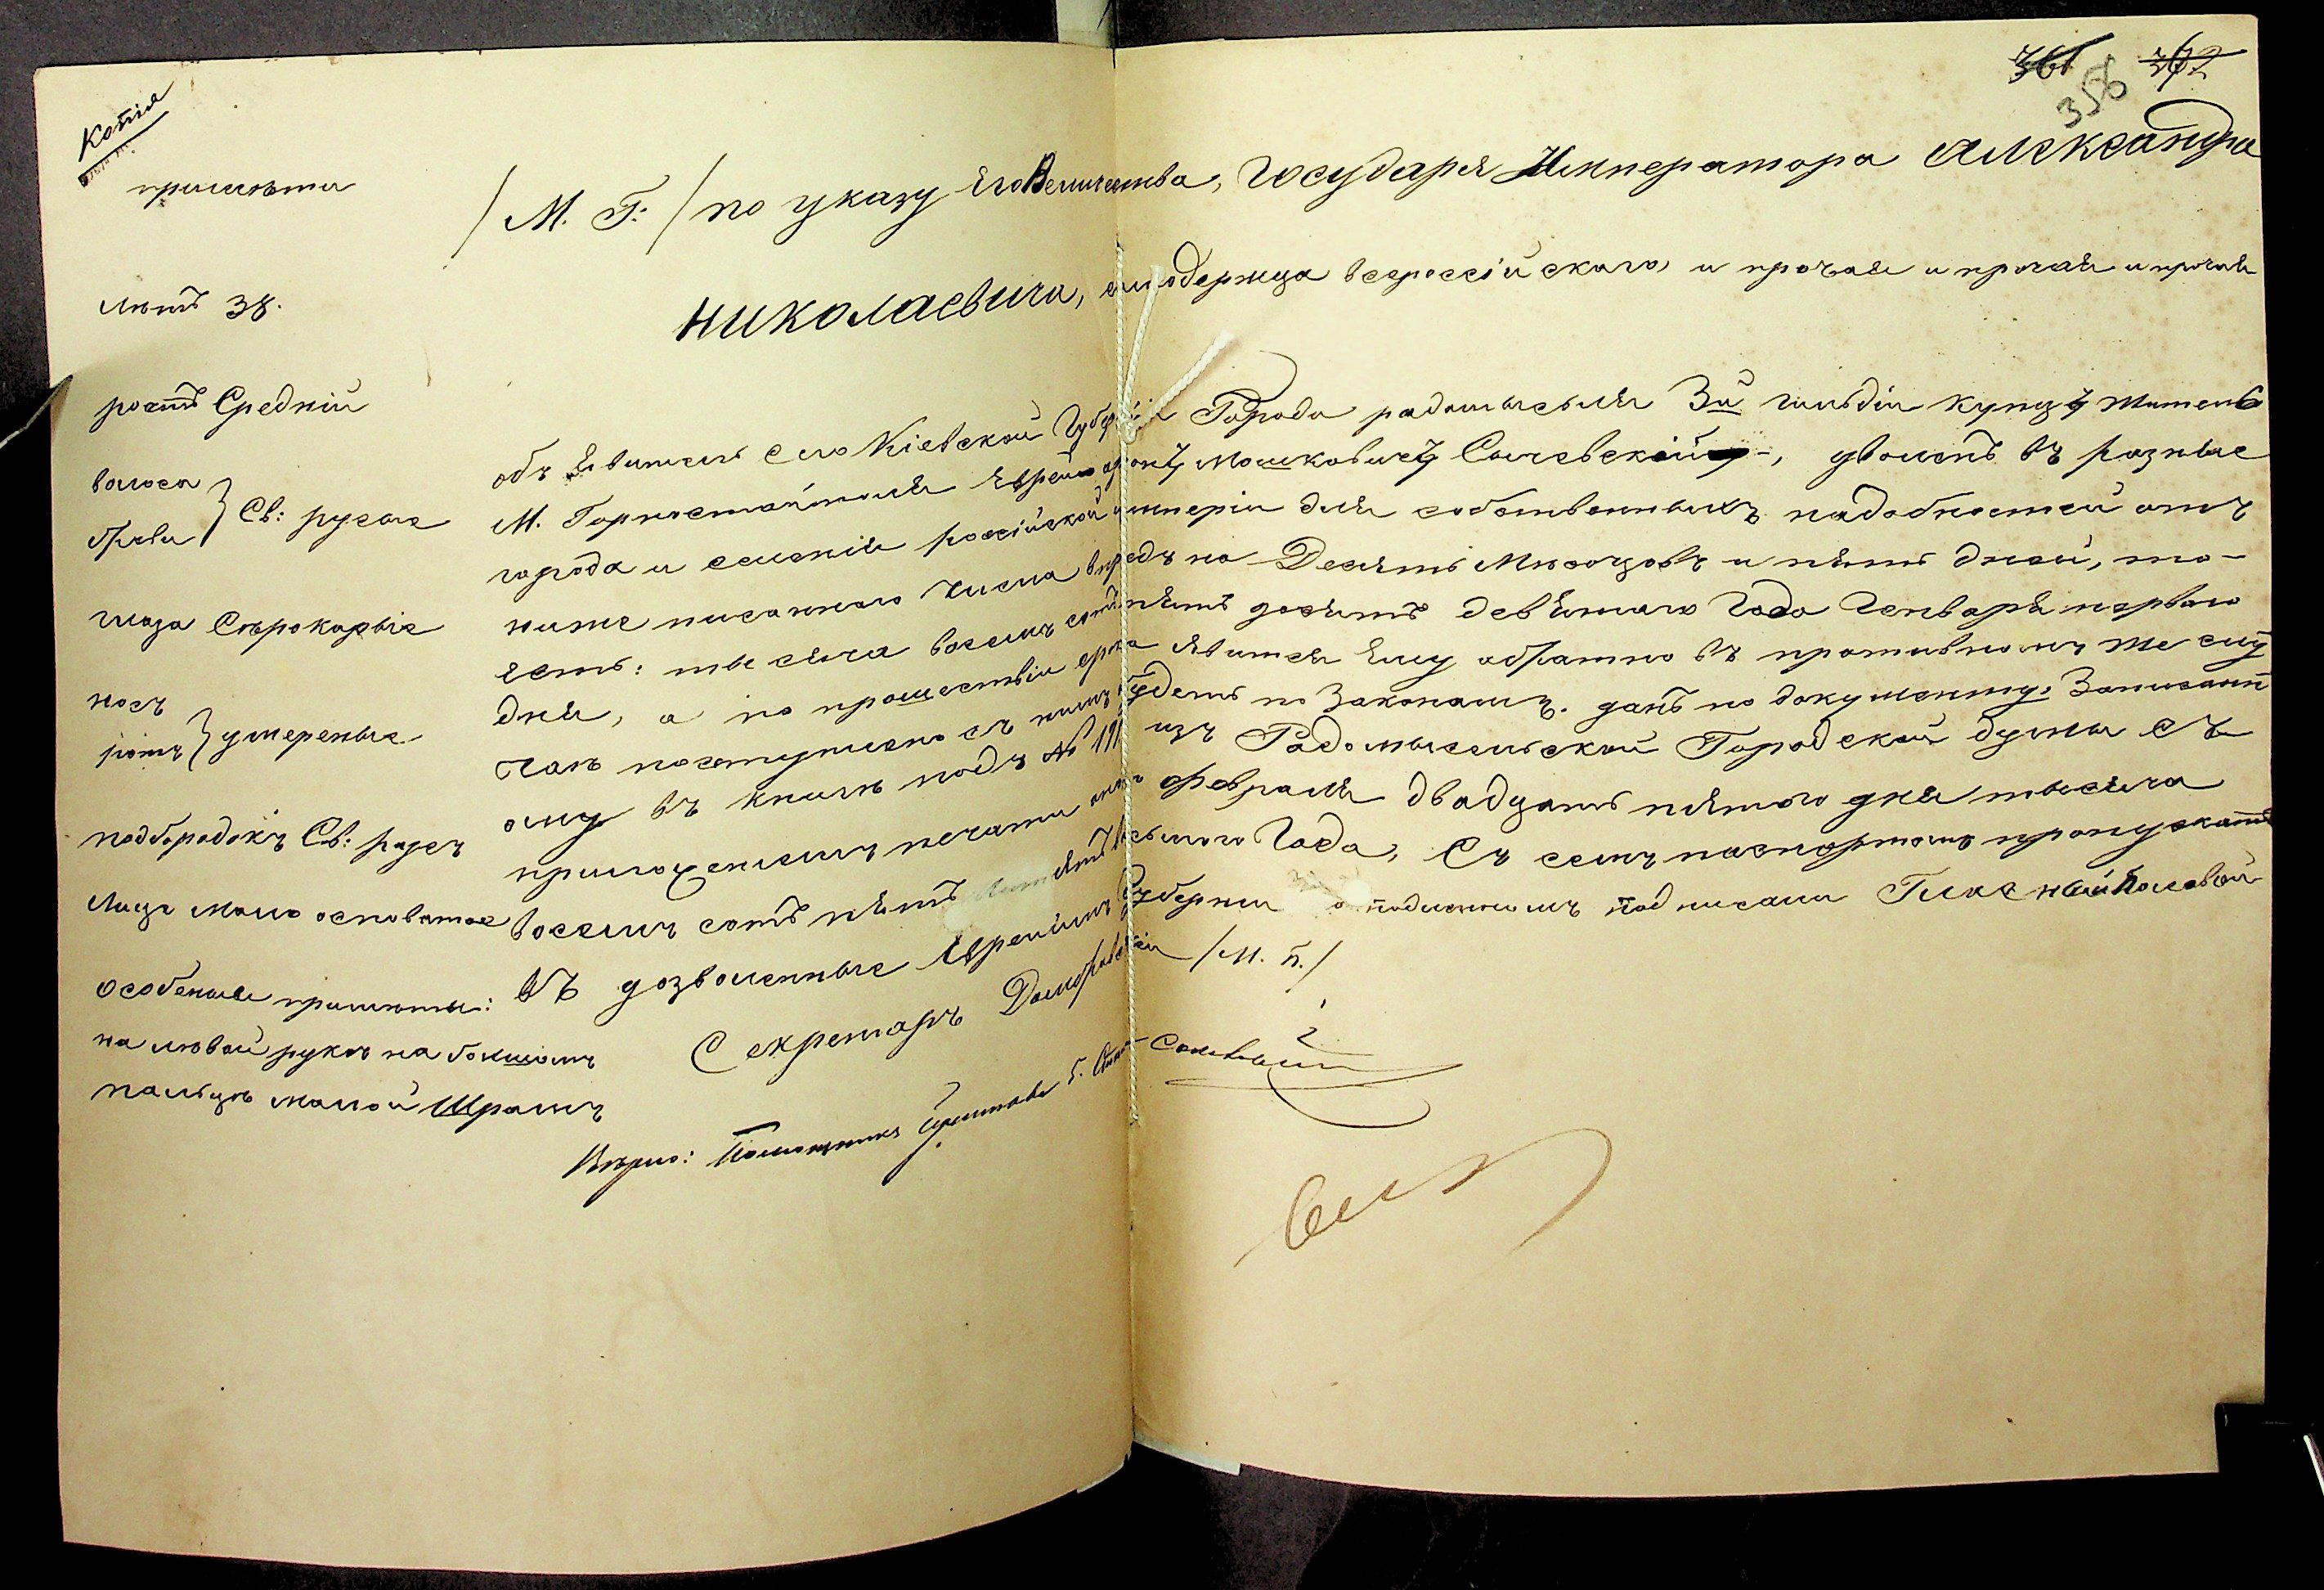 361 362
358
Копія
примѣти
лѣтъ 38.
ростъ Средній
волоса
брови } Св: русые
глаза Сѣрокаріе
носъ
ротъ } умереные
подбородокъ Св: русъ
Лице мало осповатое
особеные примѣты:
на лѣвой рукѣ на большомъ
пальцѣ малой Шрамъ
/ М. Г: / по указу Его Величества, Государя Императора Александра
Николаевича, самодержца всероссійскаго, и прочая и прочая и прочая
объявитель сего Кіевской Губерніи Города радомысля 3й гильдіи купцъ житель
М. Горностайполя Еврей Мошковичъ Сычевскій, уволенъ въ разные
города и селенія россійской имперіи для собственныхъ надобностей отъ
ниже писанного числа впредъ на Десять Мѣсяцовъ и пять дней, то-
есть: тысяча восемъ сотъ пять десятъ девятаго Года Генваря первого
дня, а по прошествіи срока явится ему обратно въ противномъ же слу
чаѣ поступлено съ нимъ будетъ по Законамъ. данъ по документу. Записанн
ому въ книгѣ подъ № 191 изъ Радомысльской Городской думы съ
приложеніемъ печати оной февраля двадцать пятого дня тысяча
восемъ сотъ пять десятъ восьмого Года, Съ семъ паспортомъ пропускатъ
въ дозволенные Евреямъ Губерніи подлинномъ подписали Гласный Полевой
Секретарь Домбровскій / М. П. /
Вѣрно: Помощникъ Пристава